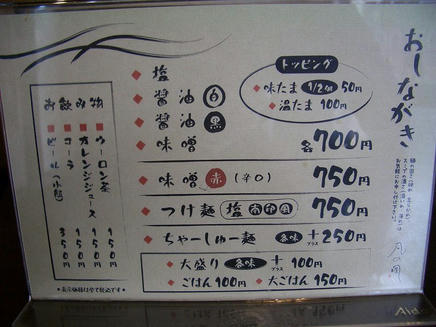 おしながき
麺の固さ、味の
スープの濃さ(濃いめ、薄め)は
お気軽にお申し付け下さい。
月の間
トッピング
味たま 1/2個 50円
温たま 100円
塩
醤油 白
醤油 黒
味噌
各700円
味噌 赤 (辛口) 750円
つけ麺 塩 750円
ちゃーしゅー麺 各味 + プラス 250円
大盛り 各味 + プラス 100円
ごはん 100円 大ごはん 150円
お飲み物
ウーロン茶 150円
オレンジジュース 150円
コーラ 150円
ビール(小瓶) 350円
*表示価格は全て税込です*